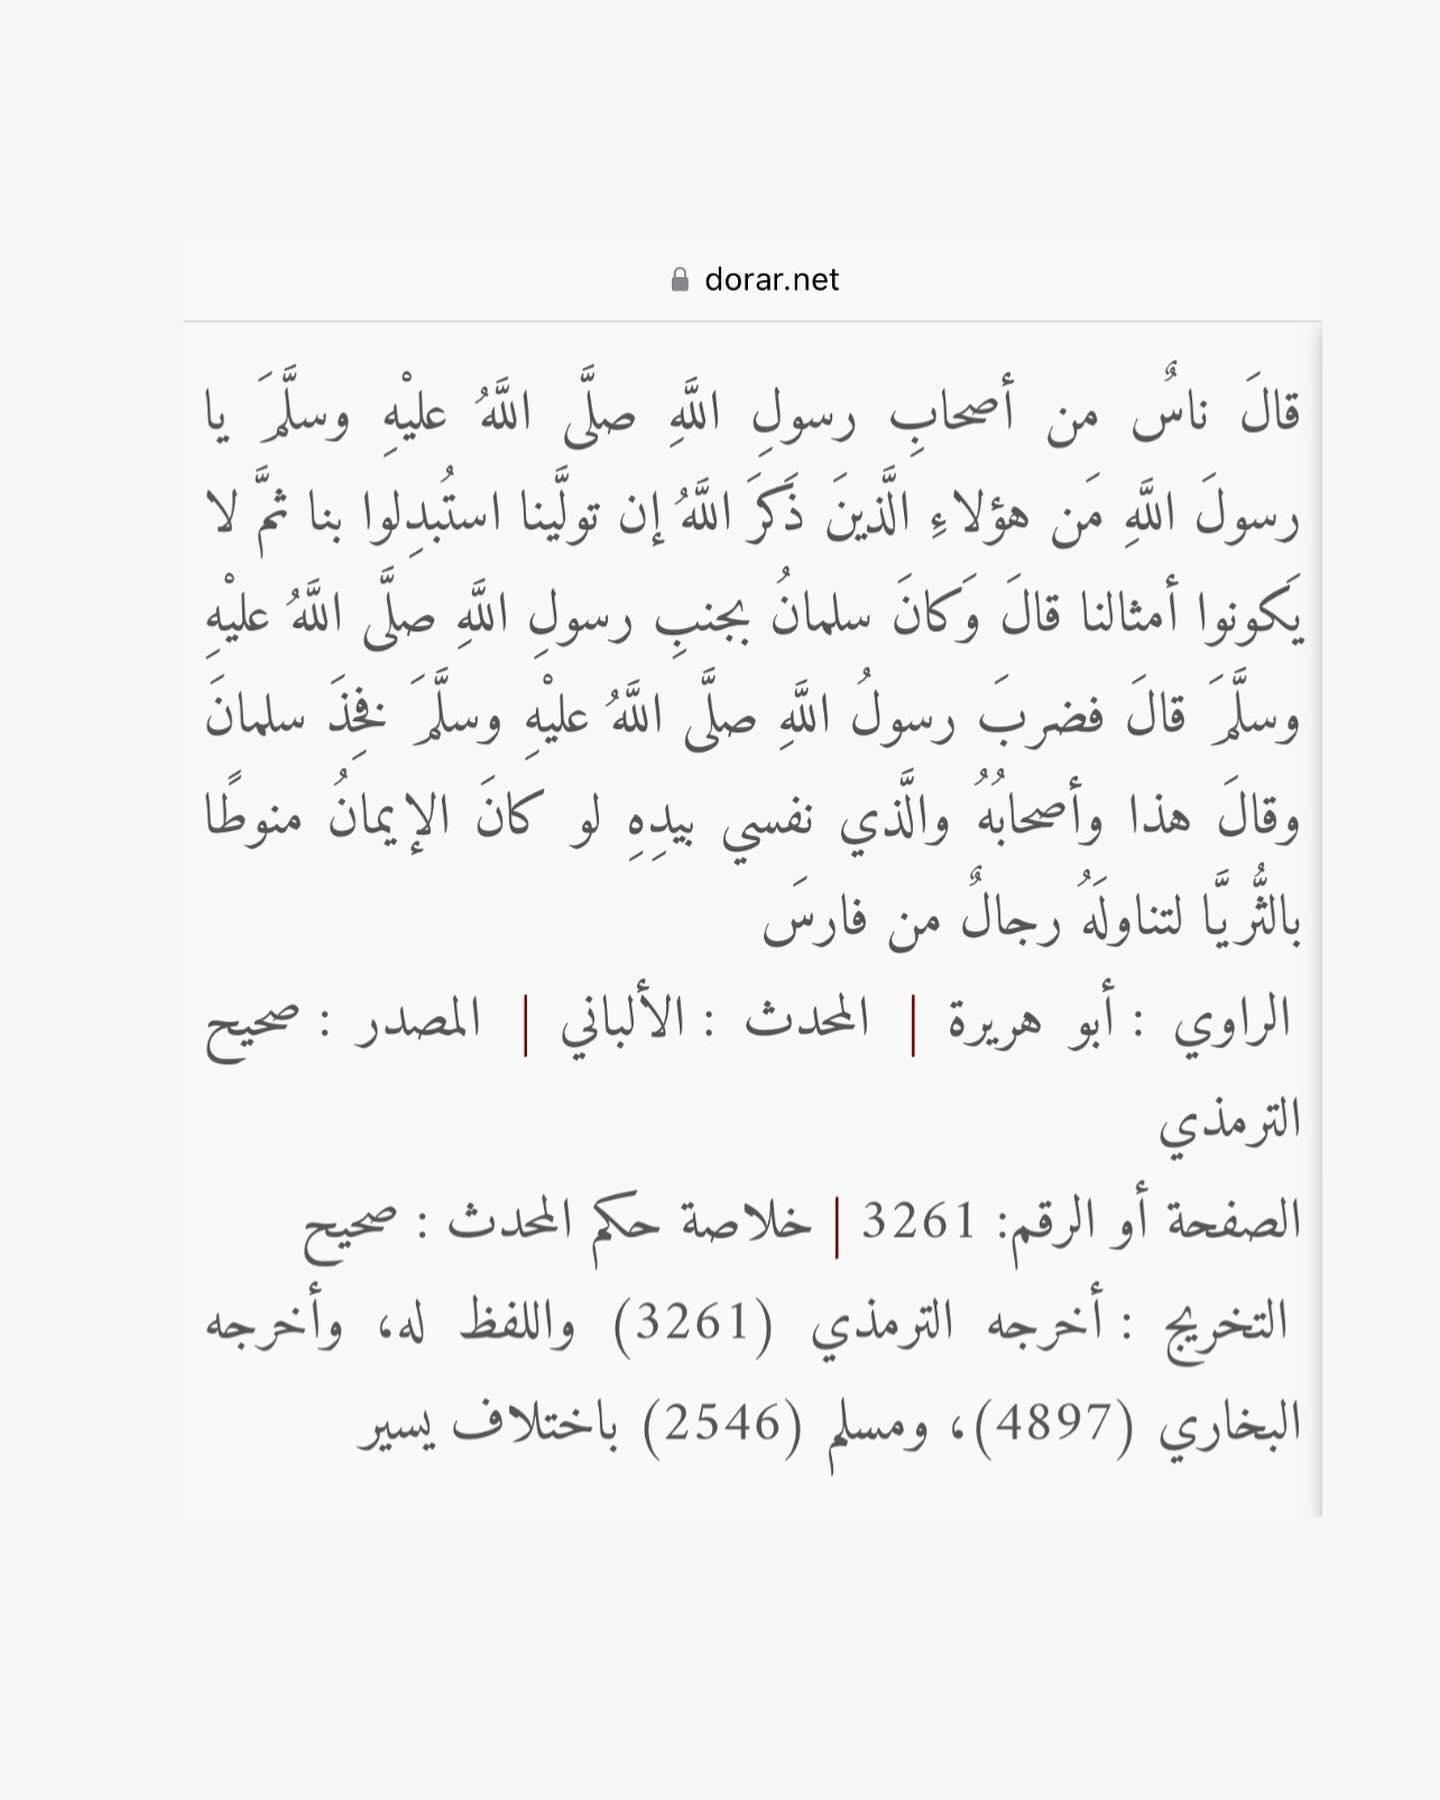 dorar.net
قالَ ناسٌ من أصحابِ رسولِ اللَّهِ صلَّى اللَّهُ عليْهِ وسلَّمَ يا
رسولَ اللَّهِ مَن هؤلاءِ الَّذينَ ذَكرَ اللَّهُ إن تولَّينا استُبدِلوا بنا ثمَّ لا
يَكونوا أمثالنا قالَ وَكانَ سلمانُ بجنبِ رسولِ اللَّهِ صلَّى اللَّهُ عليْهِ
وسلَّمَ قالَ فضربَ رسولُ اللَّهِ صلَّى اللَّهُ عليْهِ وسلَّمَ فخِذَ سلمانَ
وقالَ هذا وأصحابُهُ والَّذي نفسي بيدِهِ لو كانَ الإيمانُ منوطًا
بالثُّريَّا لتناولَهُ رجالٌ من فارسَ
الراوي : أبو هريرة | المحدث : الألباني | المصدر : صحيح
الترمذي
الصفحة أو الرقم: 3261 | خلاصة حكم المحدث : صحيح
التخريج : أخرجه الترمذي (3261) واللفظ له، وأخرجه
البخاري (4897)، ومسلم (2546) باختلاف يسير